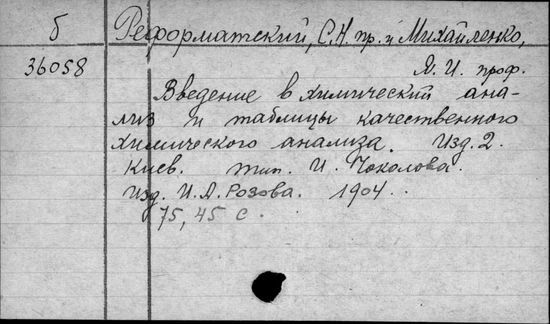 б Реформатский, С.Н. пр. и Михайленко,
36058 Я. И. проф.
Введение в химический ана-
лиз и таблицы качественного
химического анализа. Изд. 2.
Киев. тип. И. Чоколова.
Изд. И. А. Розова. 1904.
75, 45 с.